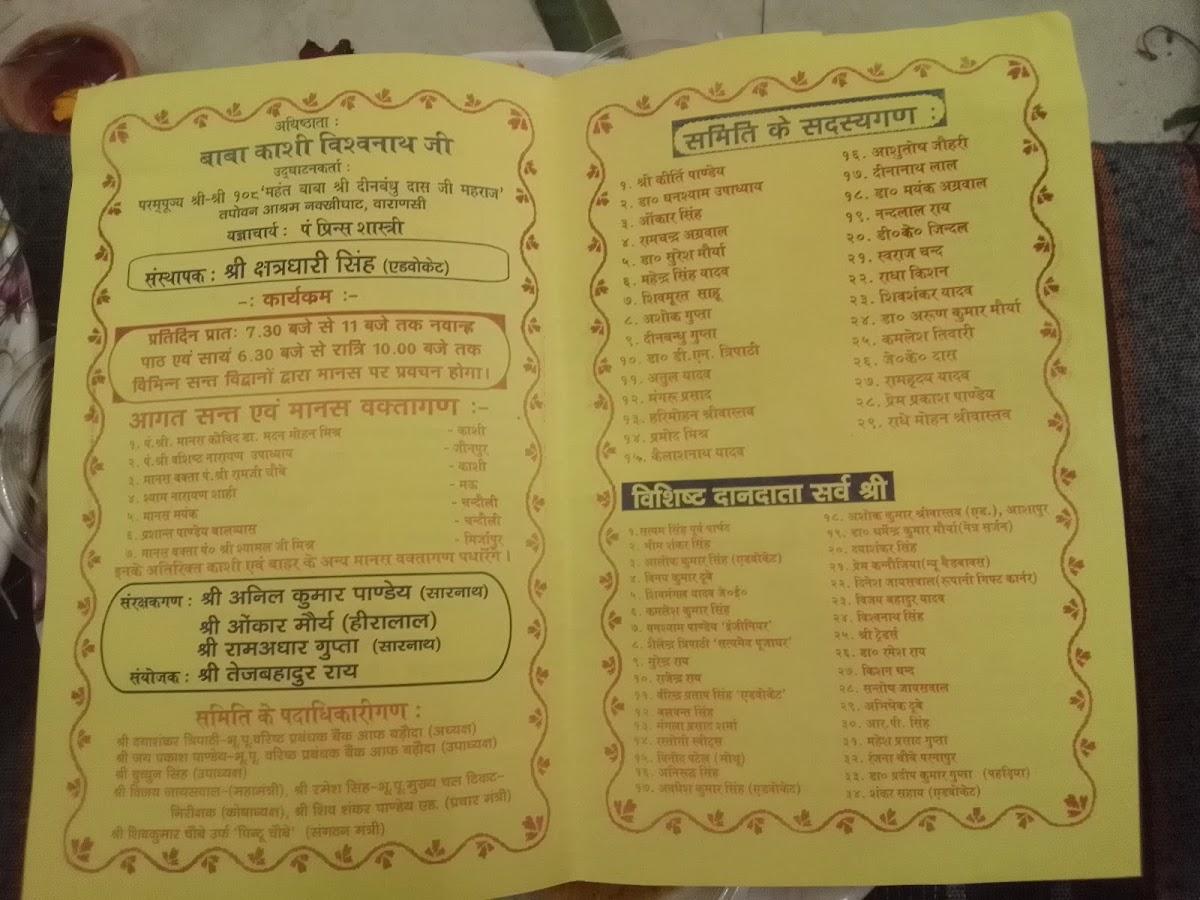 अधिष्ठाता :
बाबा काशी विश्वनाथ जी
उद्घाटनकर्ता :
परमपूज्य श्री-श्री १०८'महंत बाबा श्री दीनबंधु दास जी महराज'
तपोवन आश्रम नक्खीघाट, वाराणसी
यज्ञाचार्य : पं प्रिन्स शास्त्री
संस्थापक : श्री क्षत्रधारी सिंह (एडवोकेट)
-: कार्यकम :-
प्रतिदिन प्रातः 7.30 बजे से 11 बजे तक नवान्ह
पाठ एवं सायं 6.30 बजे से रात्रि 10.00 बजे तक
विभिन्न सन्त विद्वानों द्वारा मानस पर प्रवचन होगा।
आगत सन्त एवं मानस वक्तागण :-
१. पं.श्री. मानस कोविद डा. मदन मोहन मिश्र - काशी
२. पं.श्री वशिष्ट नारायण उपाध्याय - जौनपुर
३. मानस वक्ता पं.श्री रामजी चौबे - काशी
४. श्याम नारायण शाही - मऊ
५. मानस मयंक - चन्दौली
६. प्रशान्त पाण्डेय बालव्यास - चन्दौली
७. मानस वक्ता पं० श्री श्यामल जी मिश्र - मिर्जापुर
इनके अतिरिक्त काशी एवं बाहर के अन्य मानस वक्तागण पधारेंगे।
संरक्षकगण : श्री अनिल कुमार पाण्डेय (सारनाथ)
श्री ओंकार मौर्य (हीरालाल)
श्री रामअधार गुप्ता (सारनाथ)
संयोजक : श्री तेजबहादुर राय
समिति के पदाधिकारीगण :
श्री दयाशंकर त्रिपाठी-भू.पू.वरिष्ठ प्रबंधक बैंक आफ बड़ौदा (अध्यक्ष)
श्री जय प्रकाश पाण्डेय-भू.पू. वरिष्ठ प्रबंधक बैंक आफ बड़ौदा (उपाध्यक्ष)
श्री चुच्चुन सिंह (उपाध्यक्ष)
श्री विजय जायसवाल-(महामंत्री), श्री रमेश सिंह-भू.पू.मुख्य चल टिकट-
निरीक्षक (कोषाध्यक्ष), श्री शिव शंकर पाण्डेय एड. (प्रचार मंत्री)
श्री शिवकुमार चौबे उर्फ 'पिन्टू चौबे' (संगठन मंत्री)
समिति के सदस्यगण :
१. श्री कीर्ति पाण्डेय
२. डा० घनश्याम उपाध्याय
३. ओंकार सिंह
४. रामचन्द्र अग्रवाल
५. डा० सुरेश मौर्या
६. महेन्द्र सिंह यादव
७. शिवमूरत साहू
८. अशोक गुप्ता
९. दीनबन्धु गुप्ता
१०. डा० डी.एन. त्रिपाठी
११. अतुल यादव
१२. मंगरु प्रसाद
१३. हरिमोहन श्रीवास्तव
१४. प्रमोद मिश्र
१५. कैलाशनाथ यादव
१६. आशुतोष जौहरी
१७. दीनानाथ लाल
१८. डा० मयंक अग्रवाल
१९. नन्दलाल राय
२०. डी०के० जिन्दल
२१. स्वराज चन्द
२२. राधा किशन
२३. शिवशंकर यादव
२४. डा० अरुण कुमार मौर्या
२५. कमलेश तिवारी
२६. जे०के० दास
२७. रामहृदय यादव
२८. प्रेम प्रकाश पाण्डेय
२९. राधे मोहन श्रीवास्तव
विशिष्ट दानदाता सर्व श्री
१.सत्यम सिंह पूर्व पार्षद
२. भीम शंकर सिंह
३. आलोक कुमार सिंह (एडवोकेट)
४. विनय कुमार दूबे
५. शिवमंगल यादव जे०ई०
६. कमलेश कुमार सिंह
७. घनश्याम पाण्डेय 'इंजीनियर'
८. शैलेन्द्र त्रिपाठी 'सत्यमेव पूजाघर'
९. सुरेन्द्र राय
१०. राजेन्द्र राय
११. वीरेन्द्र प्रताप सिंह 'एडवोकेट'
१२. बलवन्त सिंह
१३. मंगला प्रसाद शर्मा
१४. रस्तोगी स्वीट्स
१५. विनोद पटेल (मोथू)
१६. अनिरुद्ध सिंह
१७. अवधेश कुमार सिंह (एडवोकेट)
१८. अशोक कुमार श्रीवास्तव (एड.), आशापुर
१९. डा० धर्मेन्द्र कुमार मौर्या(नेत्र सर्जन)
२०. दयाशंकर सिंह
२१. प्रेम कन्नौजिया(न्यू बैंडबाक्स)
२२. दिनेश जायसवाल(रूपानी गिफ्ट कार्नर)
२३. विजय बहादुर यादव
२४. विश्वनाथ सिंह
२५. श्री ट्रेडर्स
२६. डा० रमेश राय
२७. किशन चन्द
२८. सन्तोष जायसवाल
२९. अभिषेक दूबे
३०. आर.पी. सिंह
३१. महेश प्रसाद गुप्ता
३२. रंजना चौबे परनापुर
३३. डा० प्रदीप कुमार गुप्ता (पहड़िया)
३४. शंकर सहाय (एडवोकेट)